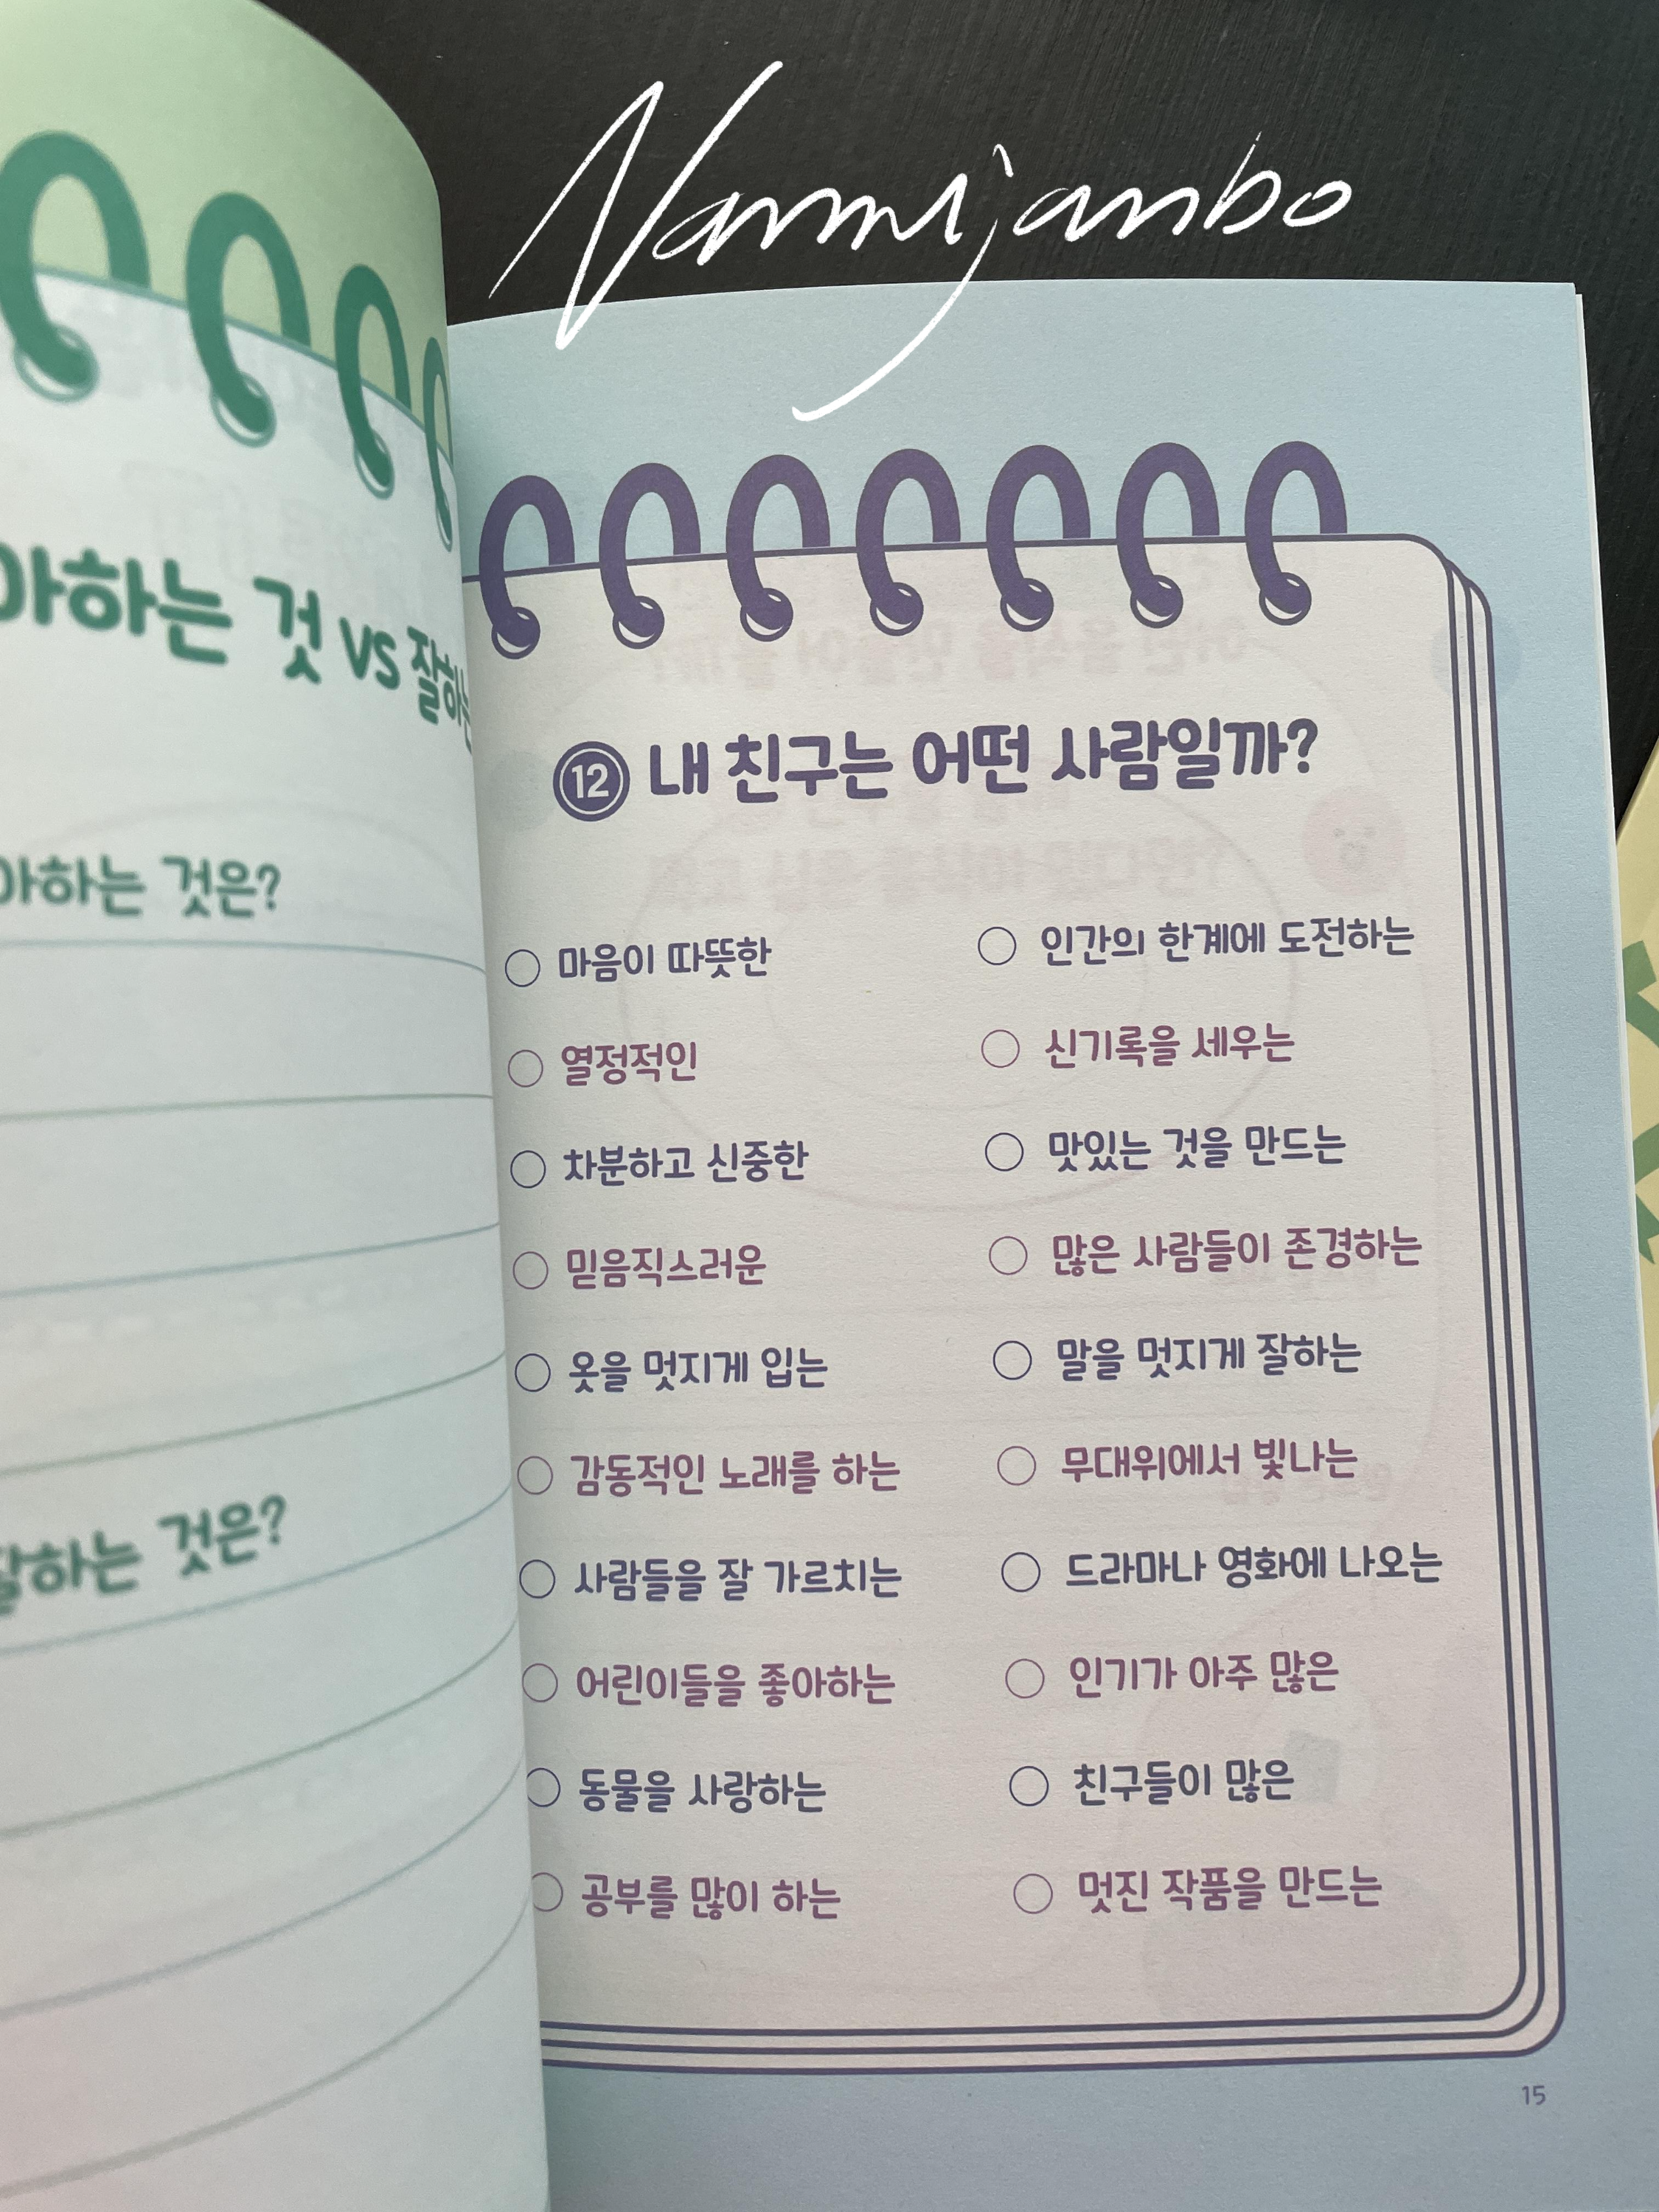 Nanmijanbo
아하는 것 vs 잘하는
아하는 것은?
잘하는 것은?
12 내 친구는 어떤 사람일까?
마음이 따뜻한
열정적인
차분하고 신중한
믿음직스러운
옷을 멋지게 입는
감동적인 노래를 하는
사람들을 잘 가르치는
어린이들을 좋아하는
동물을 사랑하는
공부를 많이 하는
인간의 한계에 도전하는
신기록을 세우는
맛있는 것을 만드는
많은 사람들이 존경하는
말을 멋지게 잘하는
무대위에서 빛나는
드라마나 영화에 나오는
인기가 아주 많은
친구들이 많은
멋진 작품을 만드는
15